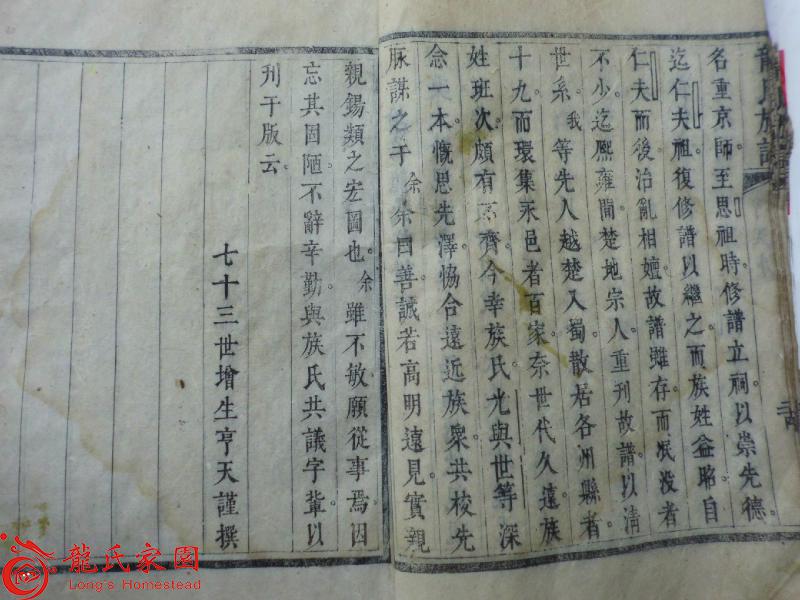 龍氏族譜
名重京師至思祖時修譜立祠以崇先德
迄仁夫祖復修譜以繼之而族姓益昭自
仁夫而後治亂相嬗故譜雖存而泯没者
不少迄熙雍間楚地宗人重刊故譜以清
世系我等先人越楚入蜀散居各州縣者
十九而環集永邑者百家奈世代久遠族
姓班次頗有不齊今幸族氏光與世等深
念一本慨思先澤恊合遠近族衆共校先
脉謀之于余余曰善誠若高明遠見實親
親錫類之宏圖也余雖不敏願從事焉因
忘其固陋不辭辛勤與族氏共議字軰以
刊于版云
七十三世增生亨天謹撰
龍氏家園
Long's Homestead